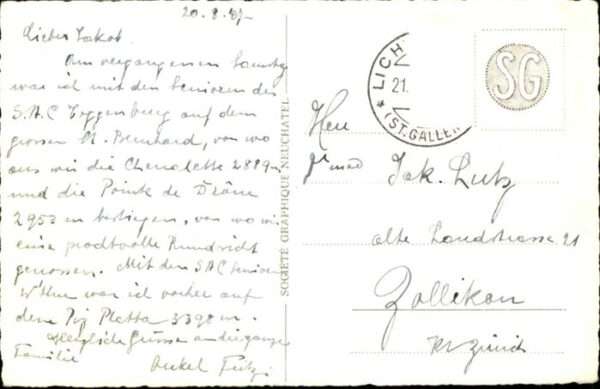 20.8.
Lieber Jakob.
Am vergangenen Samstag
war ich mit den Senioren des
S.A.C Toggenburg auf dem
grossen St. Bernhard, von wo
aus wir die Chenalette 2889 m
und die Pointe de Drône
2953 m bestiegen, von wo wir
eine prachtvolle Rundsicht
genossen. Mit den SAC Senioren
war ich vorher auf
dem Piz Platta 3398 m.
Herzliche Grüsse an die ganze
Familie
Onkel Fritz
SOCIÉTÉ GRAPHIQUE NEUCHATEL
LICH
21.
(ST. GALLEN
SG
Herr
Dr med
Jak. Lutz
alte Landstrasse 21
Zollikon
Kt Zürich